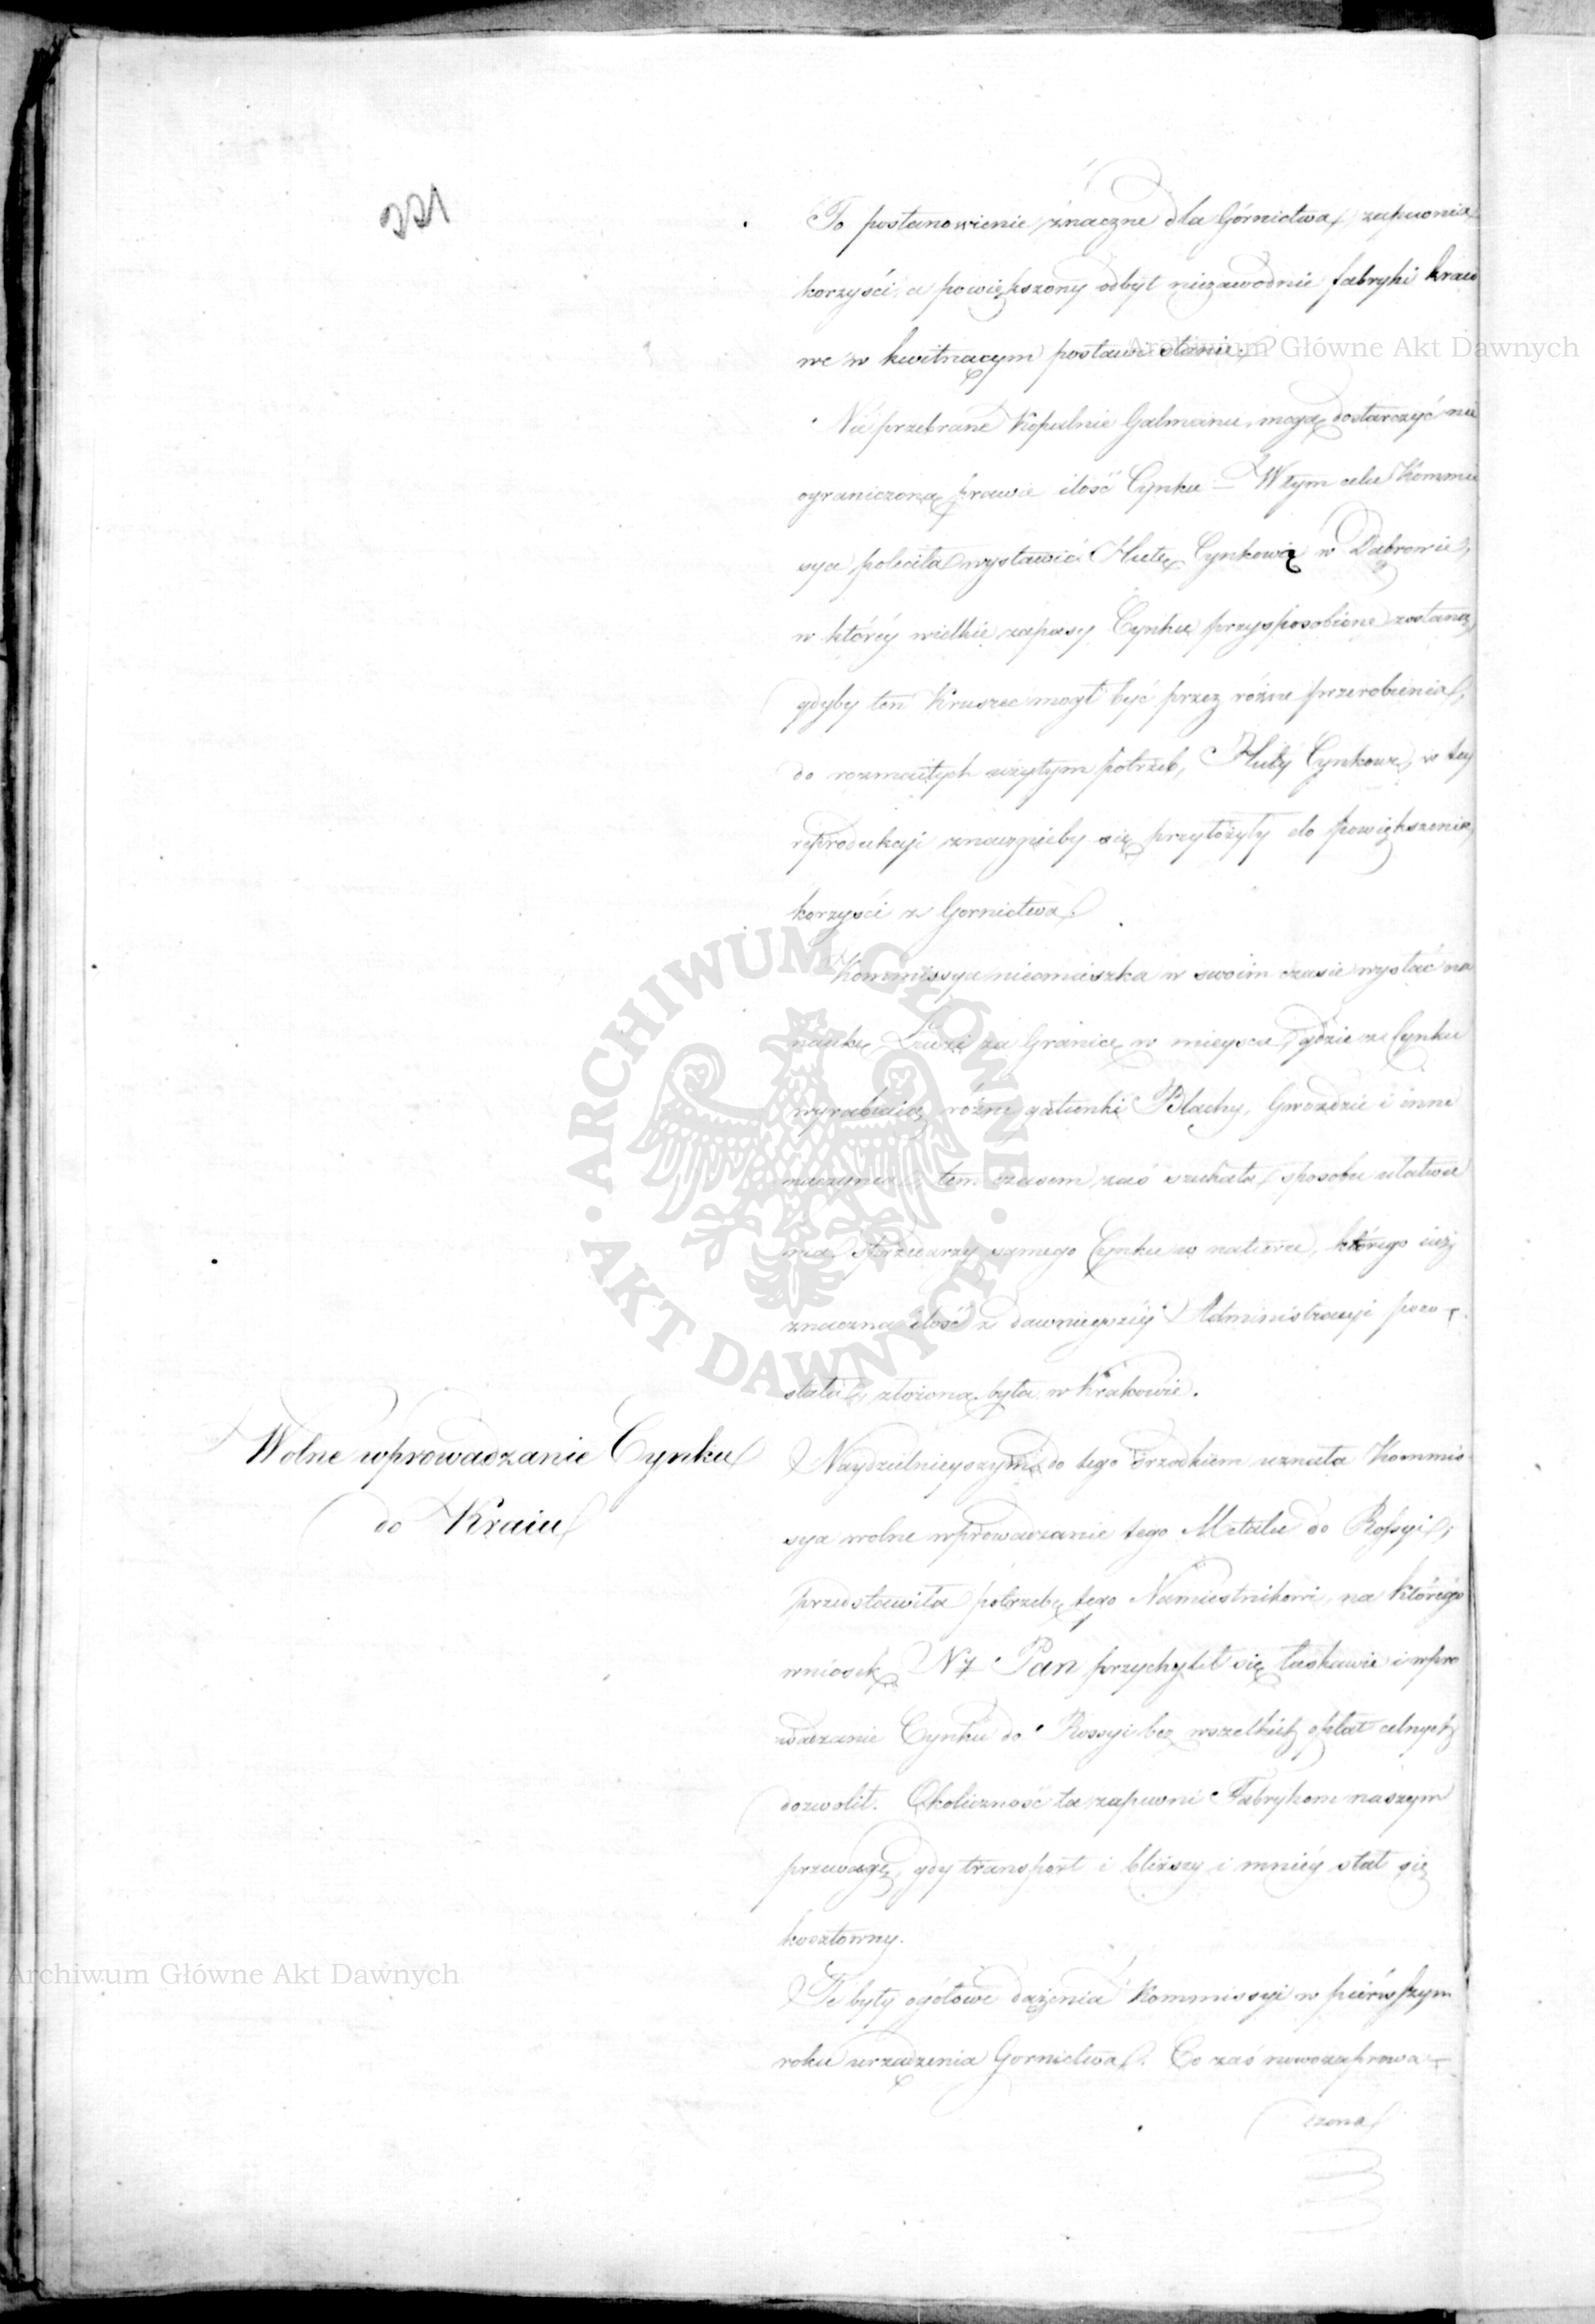 221
To postanowienie znaczne dla Górnictwa zapewnia
korzyści, a powiększony odbyt niezawodnie fabryki kraio
we w kwitnącym postawi stanie.
Nie przebrane Kopalnie Galmanu, mogą dostarczyć nie
ograniczoną prawie ilość Cynku – W tym celu Kommis
sya poleciła wystawić Hutę Cynkową w Dąbrowie,
w któréy wielkie zapasy Cynku przysposobione zostaną,
gdyby ten Kruszec mógł być przez różne przerobienia,
do rozmaitych użytym potrzeb, Huty Cynkowe, w tey
reprodukcyi znacznieby się przyłożyły do powiększenia
korzyści z Gornictwa.
Kommissya nieomieszka w swoim czasie wysłać na
naukę Ludzi za Granicę w mieysca, gdzie z Cynku
wyrabiaią różne gatunki Blachy, Gwoździe i inne
naczynia, tem czasem zaś szukała sposobu ułatwie
nia sprzedarzy samego Cynku w naturze, którego iuż
znaczna ilość z dawnieyszéy Administracyi pozo-
stała, złożona była w Krakowie.
Wolne wprowadzanie Cynku
do Kraiu
Naydzielnieyszym do tego srzodkiem uznała Kommis
sya wolne wprowadzanie tego Metalu do Rossyi;
przedstawiła potrzebę tego Namiestnikowi, na którego
wniosek N. Pan przychylił się łaskawie i wpro
wadzanie Cynku do Rossyi bez wszelkich opłat celnych
dozwolił. Okoliczność ta zapewni Fabrykom naszym
przewagę, gdy transport i bliższy i mniéy stał się
kosztowny.
Te były ogółowe dążenia Kommissyi w pierwszym
roku urządzenia Gornictwa. Co zaś nowozaprowa-
dzona
Archiwum Główne Akt Dawnych
Archiwum Główne Akt Dawnych
ARCHIWUM GŁÓWNE AKT DAWNYCH